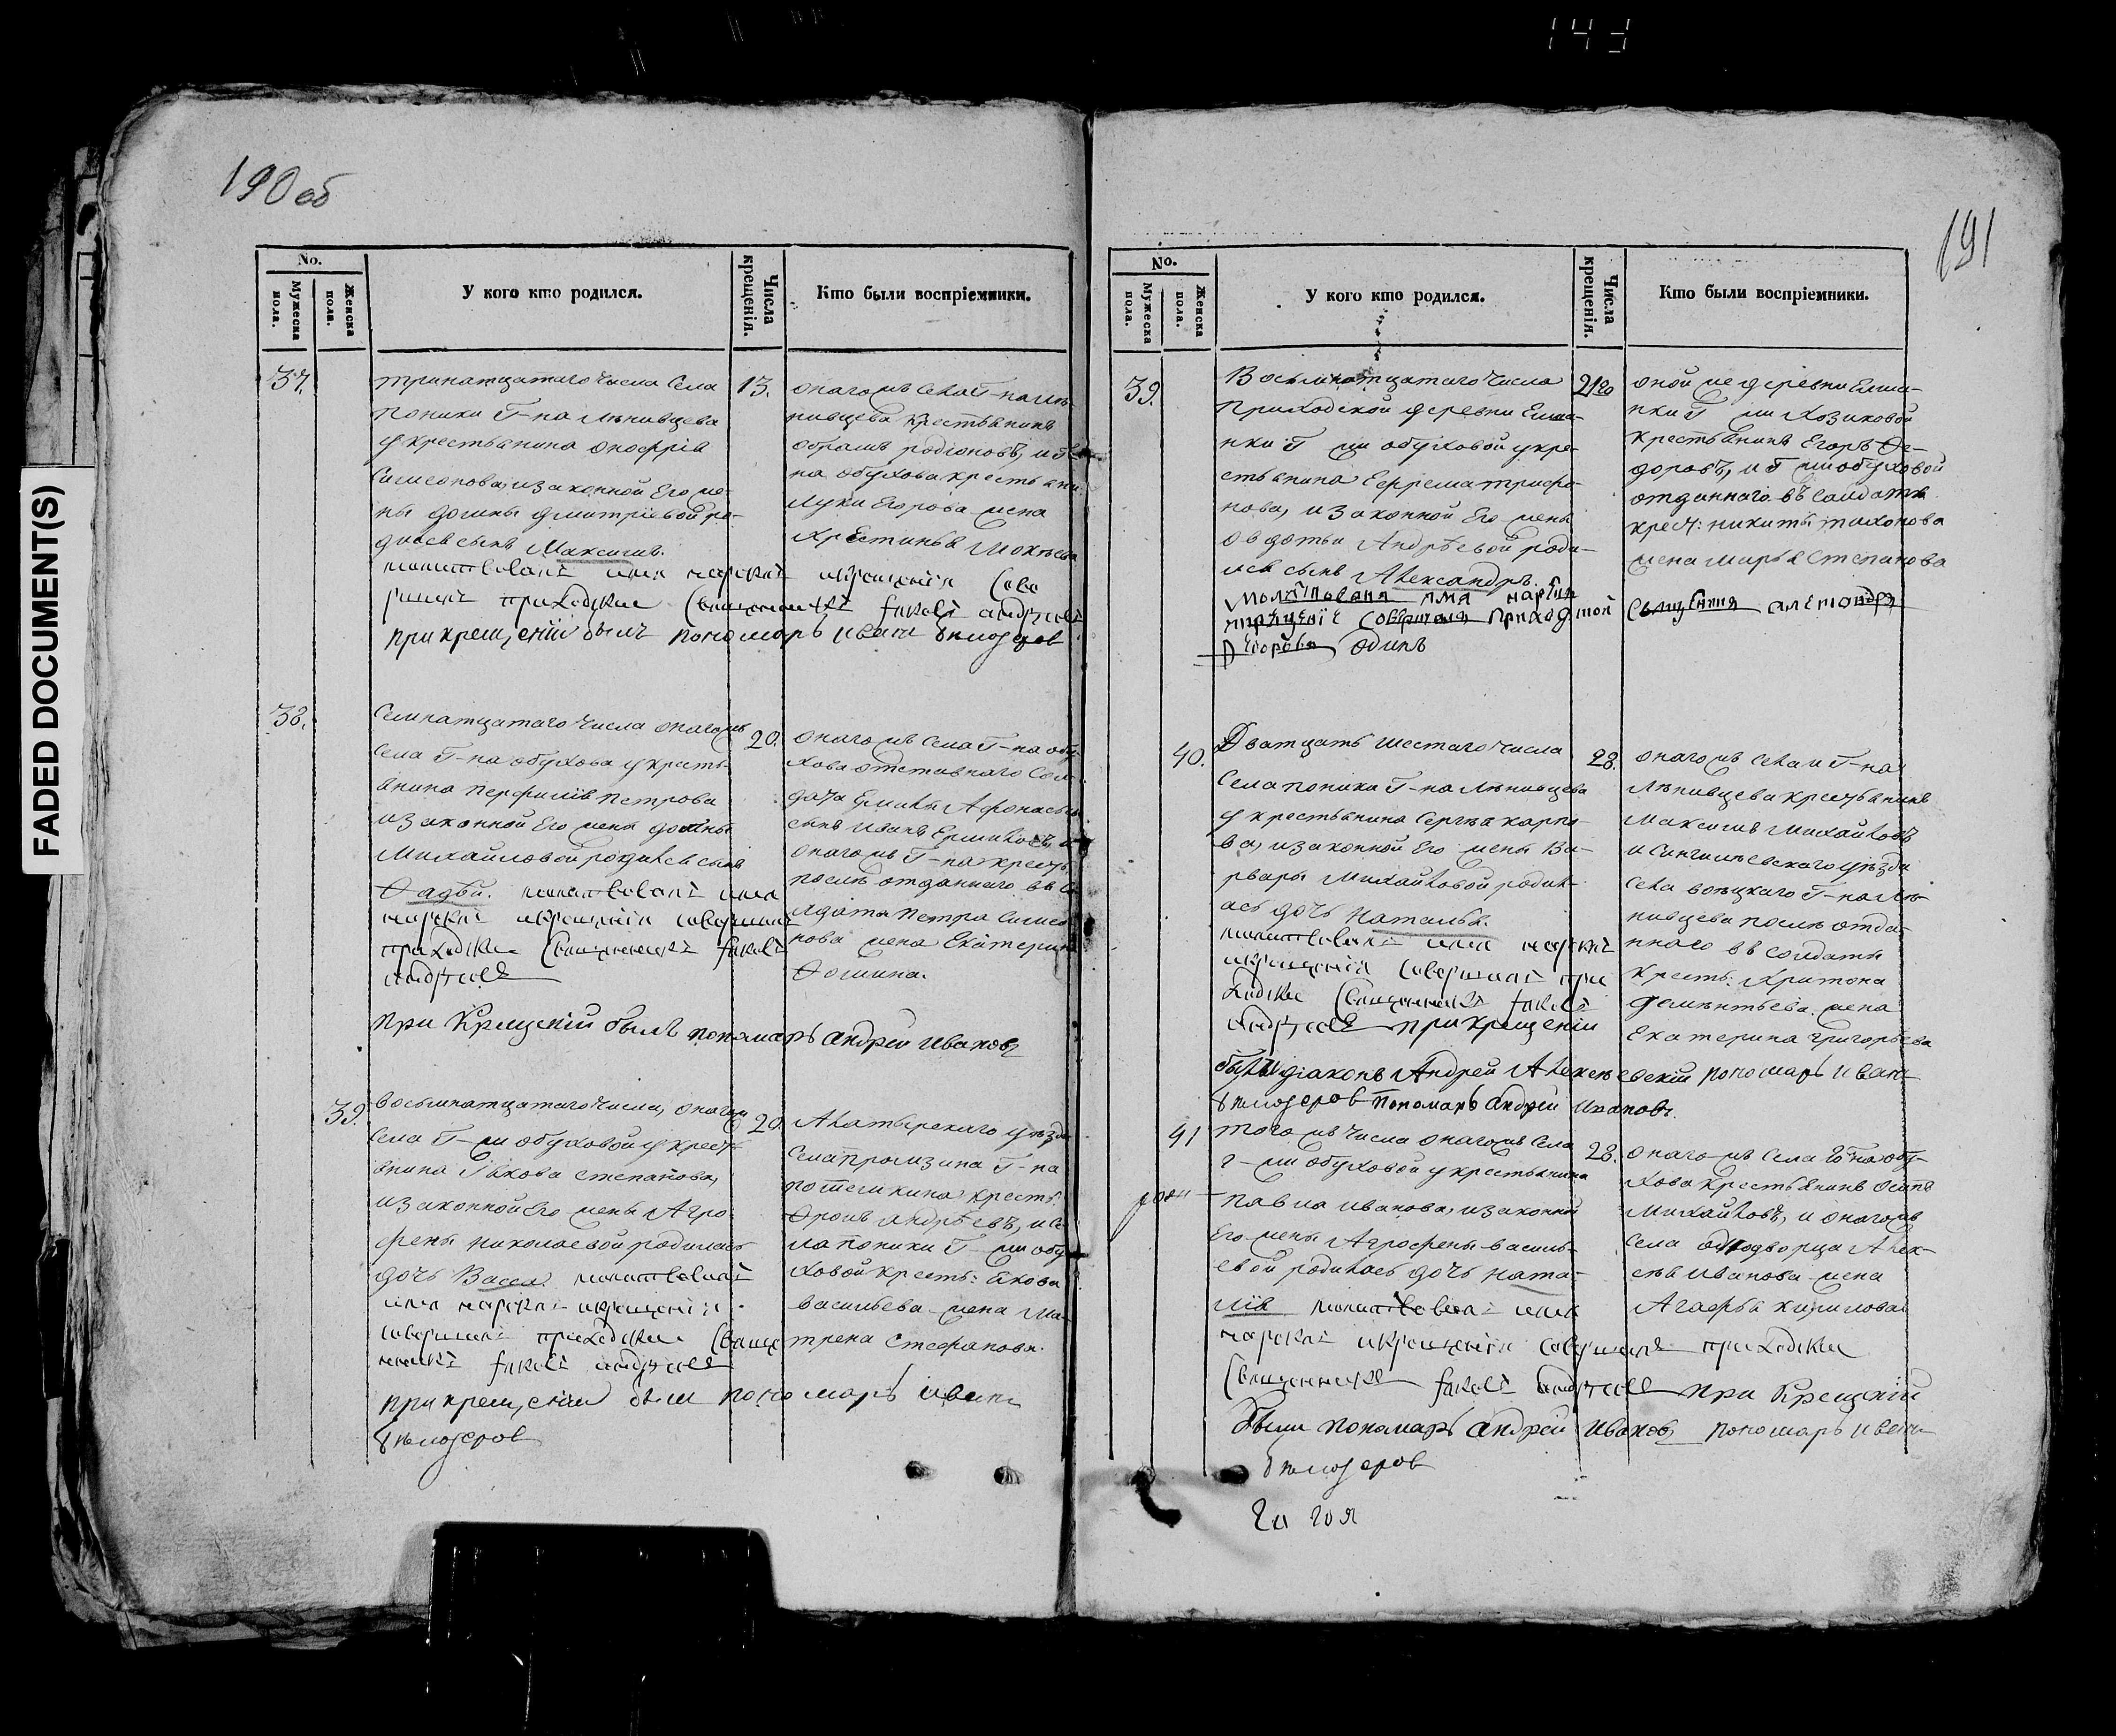 143
FADED DOCUMENT(S)
190 об
No.
Мужеска пола.
Женска пола.
У кого кто родился.
Числа крещенія.
Кто были воспріемники.
37.
тринатцатаго числа села
поники Г-на Лѣнивцева
у крестьянина Онофрія
Симеонова, изаконной Его же-
ны Домны Дмитріевой ро-
дился сынъ Максимъ.
молитвовалъ имя нарекъ икрещеніе сове
ршилъ приходскій священникъ Іаковъ Андреевъ
при крещеніи былъ пономарь Иванъ Бѣлозеров
13.
онагожъ села Г-на Лѣ-
нивцева крестьянинъ
родіоновъ, и Г-
на обухова крестьяни:
Луки Егорова жена
Хрестинья
38.
Семнатцатаго числа онагожъ
села Г-на обухова у кресть-
янина Перфилія Петрова
изаконной Его жены домны
Михайловой родился сынъ
Ѳадѣй. молитвовалъ имя
нарекъ икрещеніе совершилъ
приходскій священникъ Іаковъ
Андреевъ
при Крещеніи былъ пономарь Андрей Ивановъ
20.
онагожъ села Г-на обу-
хова отставнаго Сол-
дата Афонасьева
сынъ Иванъ
онагожъ Г-на крестья:
послѣ отданнаго въ Со
лдаты Петра Симео
нова жена Екатерина
Ѳомина.
39.
восьмнатцатаго числа, онагожъ
села Г-жи обуховой у кресть-
янина Якова степанова,
изаконной Его жены Агро-
фены николаевой родилась
дочь Васса. молитвовалъ
имя нарекъ икрещеніе
совершилъ приходскій свяще
нникъ Іаковъ Андреевъ
при крещеніи былъ пономарь Иванъ
Бѣлозеров
20.
Алатырскаго уѣзда
села Промзина Г-на
потемкина кресть:
Ѳролъ Андрѣевъ, и се
ла поники Г-жи обу
ховой кресть: Якова
васильева жена Ма-
трена Стефанова.
191
No.
Мужеска пола.
Женска пола.
У кого кто родился.
Числа крещенія.
Кто были воспріемники.
39.
Восьмнатцатаго числа
Приходской деревни
Г жи обуховой у кре-
стьянина Ефрема трифо-
нова, изаконной Его жены
овдотьи Андрѣевой роди-
лся сынъ Александръ.
молитвовалъ имя нарекъ
икрещеніе совершилъ приходской священникъ
одинъ
оной же деревни
Г жи Хозиковой
крестьянинъ Егоръ Ѳе-
доровъ, и Г жи обуховой
отданнаго въ солдаты
крест: никиты тихонова
жена марья Степанова
40.
Дватцать шестаго числа
Села поники Г-на Лѣнивцева
у крестьянина Сергѣя карпо-
ва, изаконной Его жены Ва-
рвары Михайловой родил-
ась дочь Наталья.
молитвовалъ имя нарекъ
икрещеніе совершилъ при
ходскій священникъ Іаковъ
Андреевъ при крещеніи
были діаконъ Андрей Алексѣевскій пономарь Иванъ
Бѣлозеровъ Пономарь Андрей Ивановъ.
28.
онагожъ села и Г-на
Лѣнивцева крестьянинъ
Максимъ Михайловъ
и Сингилѣевскаго уѣзда
села Г-на Лѣ-
нивцева послѣ отда-
ннаго въ солдаты
кресть: Харитона
дементьева. жена
Екатерина Григорьева
41
того жъ числа онагожъ села
г-жи обуховой у крестьянина
павла Иванова, изаконной
Его жены Агрофены василь-
евой родилась дочь ната-
лія молитвовалъ имя
нарекъ икрещеніе совершилъ приходскій
священникъ Іаковъ Андреевъ при Крещеніи
были пономарь Андрей Ивановъ пономарь Иванъ
Бѣлозеров
28.
онагожъ села Г-на обу-
хова крестьянинъ Осипъ
Михайловъ, и онагожъ
села однодворца Алек-
сѣя Иванова жена
Агафья кирилова